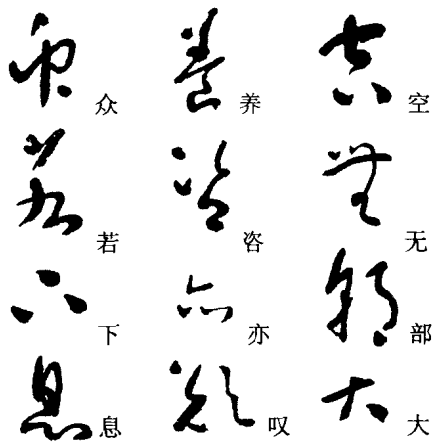 众 养 空
若 咨 无
下 亦 部
息 叹 大